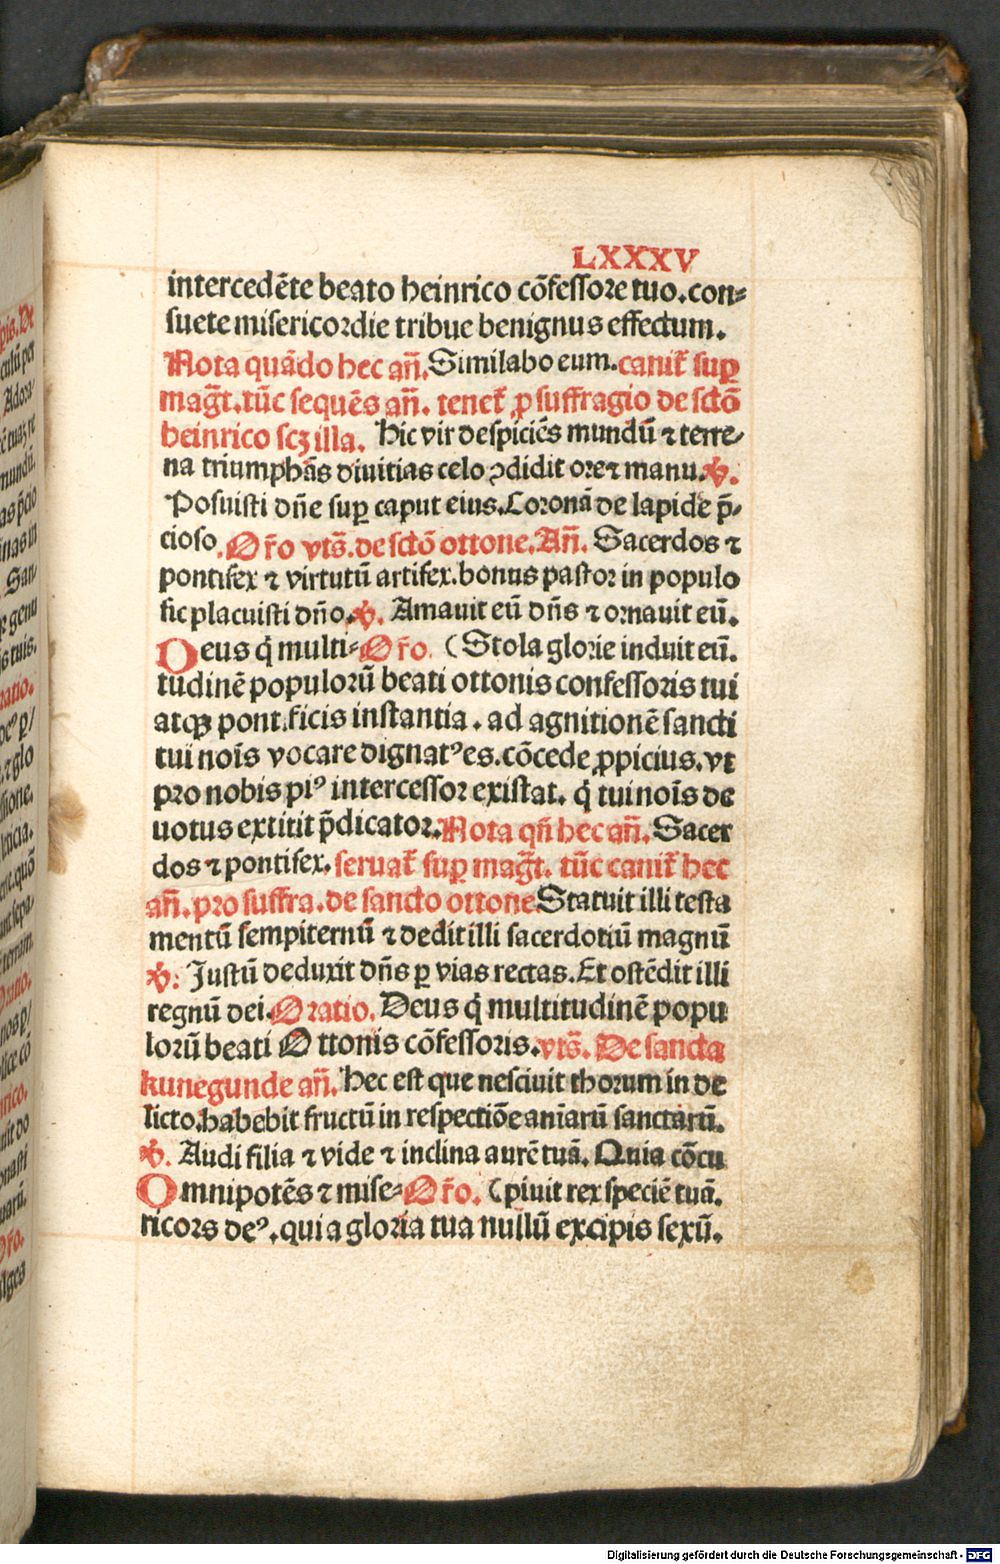 LXXXV
intercedēte beato heinrico cōfessore tuo. con⸗
suete misericordie tribue benignus effectum.
Nota quādo hec an̄. Similabo eum. canit᷑ suꝑ
mag̅t. tūc sequēs an̄. tenet᷑ ꝓ suffragio de sctō
heinrico scꝫ illa. Hic vir despiciēs mundū ⁊ terre⸗
na triumphās diuitias celo ↄdidit ore ⁊ manu. ℣.
Posuisti dn̄e suꝑ caput eius. Coronā de lapide p̄⸗
cioso. Or̄o vts̄. de sctō ottone. An̄. Sacerdos ⁊
pontifex ⁊ virtutū artifex. bonus pastor in populo
sic placuisti dn̄o. ℣. Amauit eū dn̄s ⁊ ornauit eū.
Deus q̄ multi⸗ Or̄o. (Stola glorie induit eū.
tudinē populorū beati ottonis confessoris tui
atqꝫ pontificis instantia. ad agnitionē sancti
tui noīs vocare dignatꝰ es. cōcede ꝓpicius. vt
pro nobis piꝰ intercessor existat. q̄ tui noīs de
uotus extitit p̄dicator. Nota qn̄ hec an̄. Sacer
dos ⁊ pontifex. seruat᷑ suꝑ mag̅t. tūc canit᷑ hec
an̄. pro suffra. de sancto ottone. Statuit illi testa
mentū sempiternū ⁊ dedit illi sacerdotiū magnū
℣. Justū deduxit dn̄s ꝑ vias rectas. Et ostēdit illi
regnū dei. Oratio. Deus q̄ multitudinē popu
lorū beati Ottonis cōfessoris. vts̄. De sancta
kunegunde an̄. Hec est que nesciuit thorum in de
licto. habebit fructū in respectiōe animarū sanctarū.
℣. Audi filia ⁊ vide ⁊ inclina aurē tuā. Quia cōcu
Omnipotēs ⁊ mise⸗ Or̄o. (piuit rex speciē tuā.
ricors deꝰ. qui a gloria tua nullū excipis sexū.
Digitalisierung gefördert durch die Deutsche Forschungsgemeinschaft - DFG